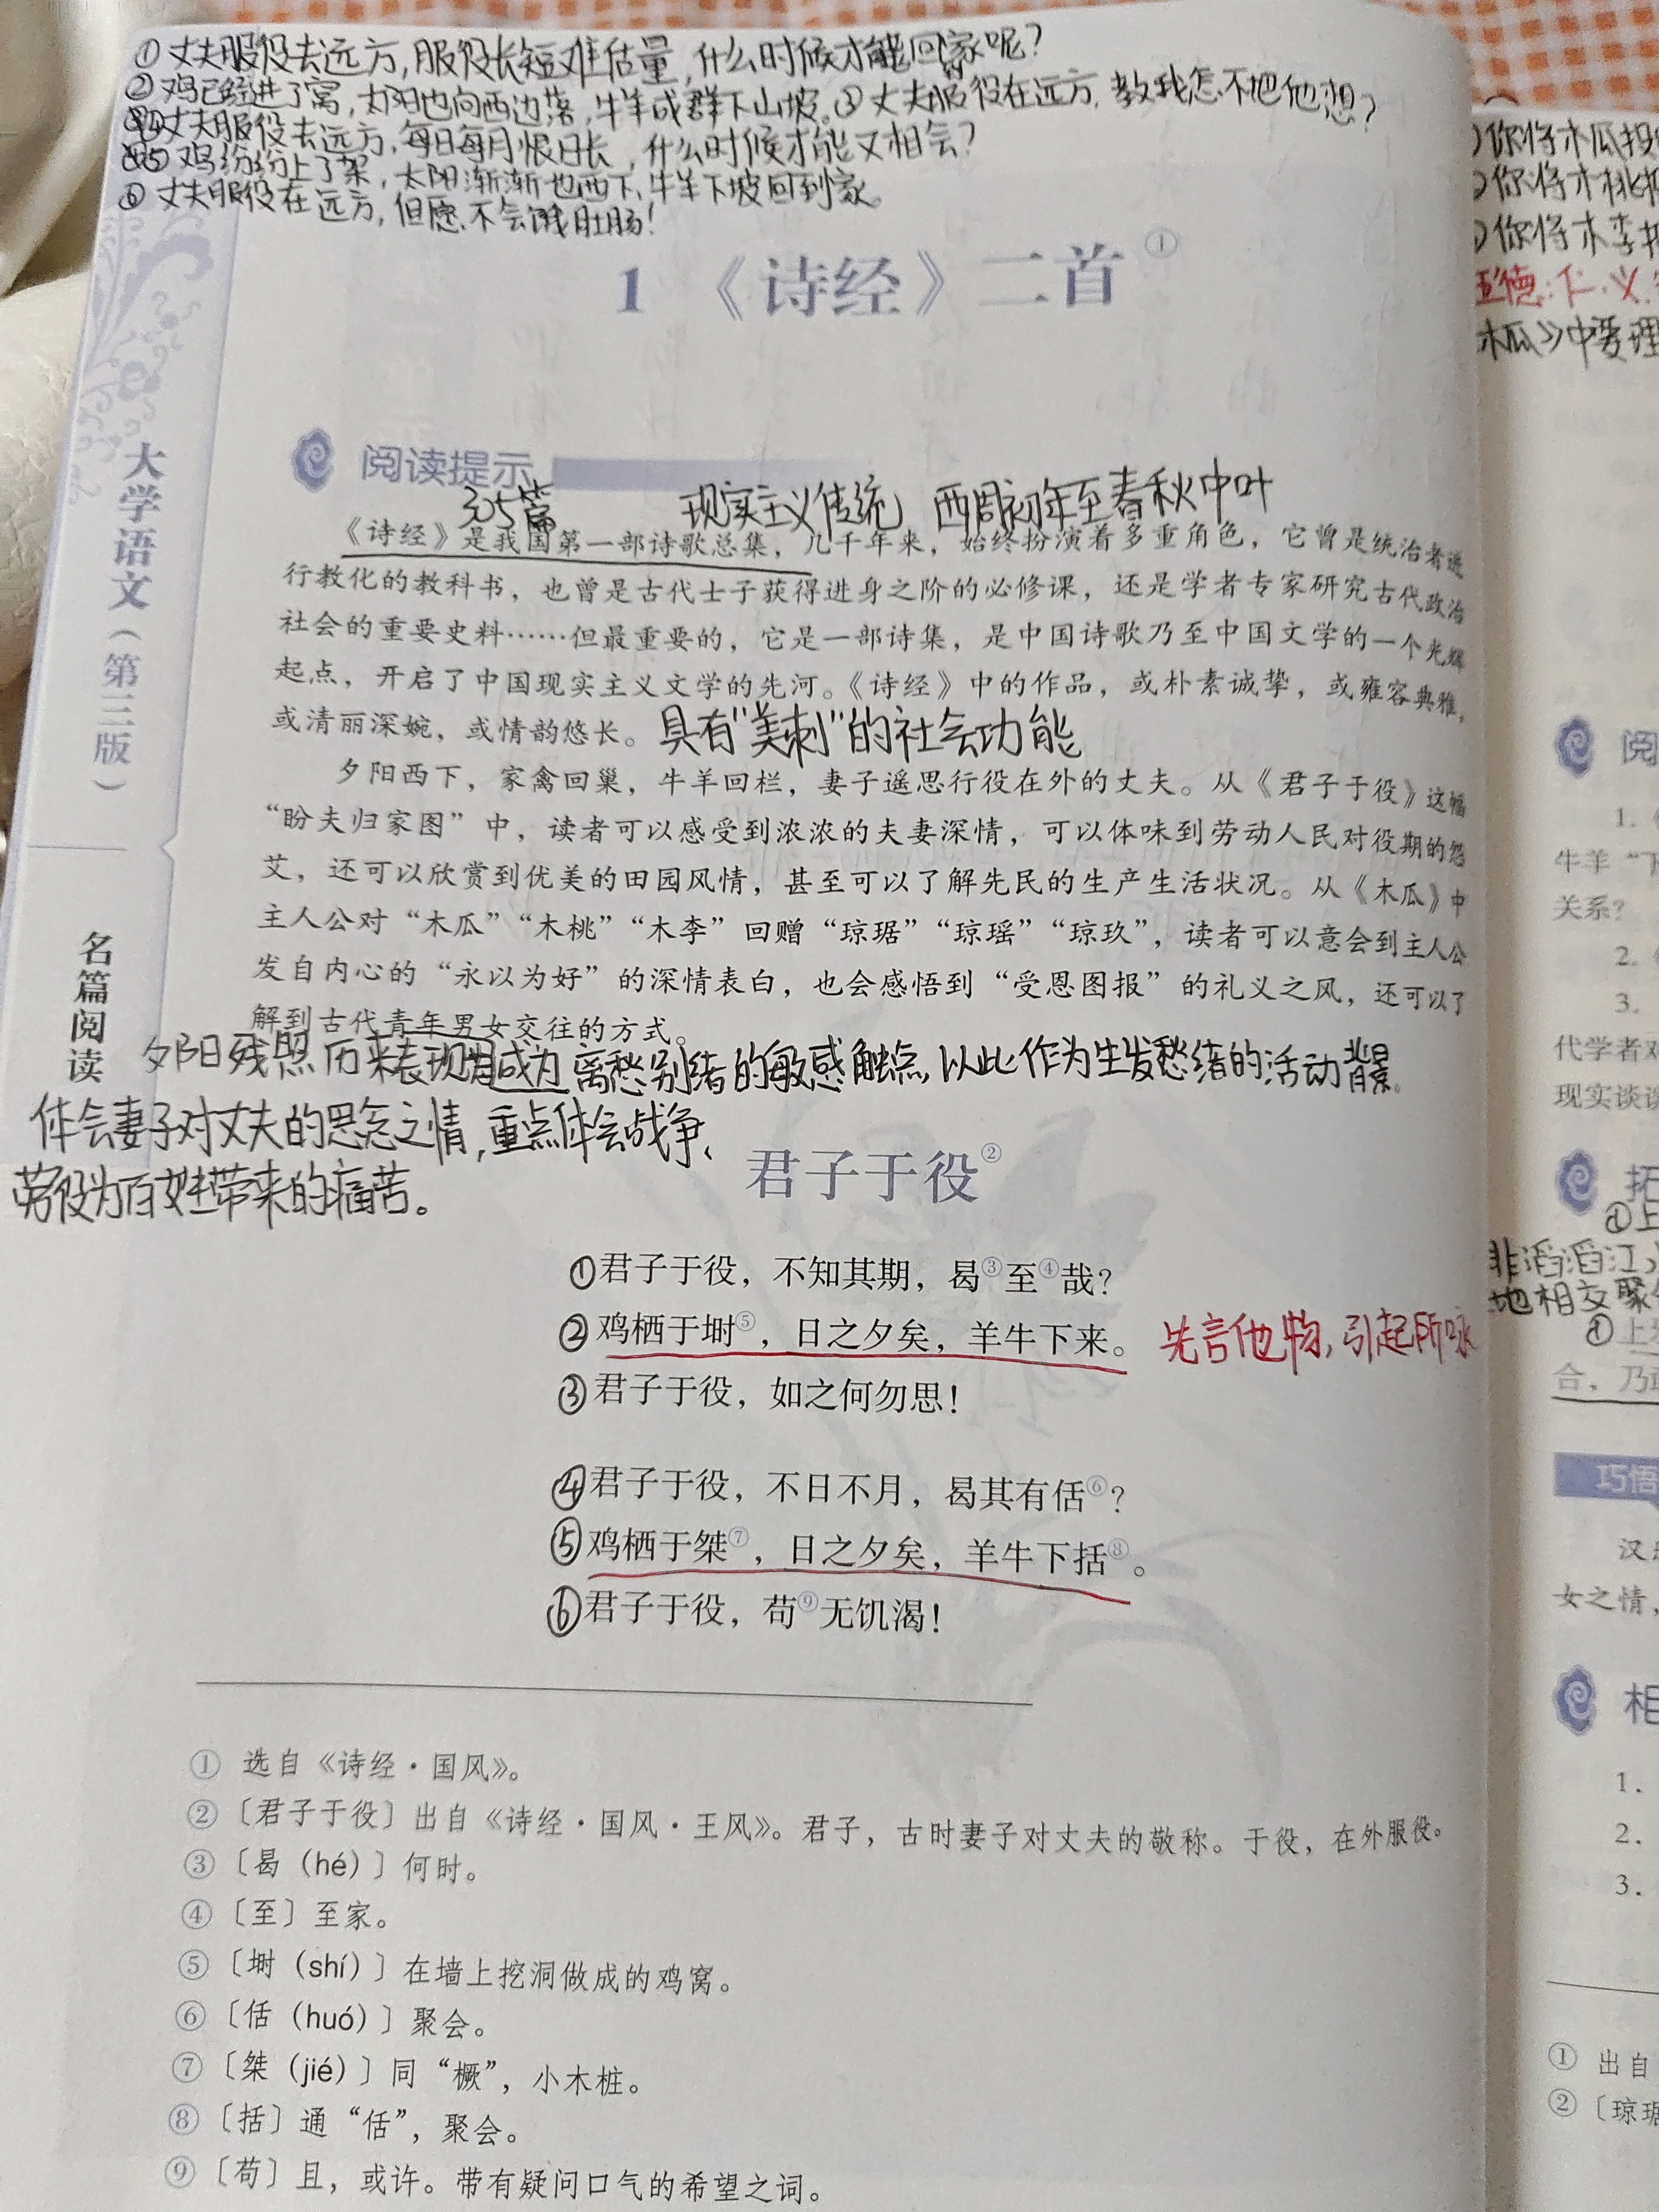 ①丈夫服役去远方,服役长短难估量,什么时候才能回家呢?
②鸡已经进了窝,太阳也向西边落,牛羊成群下山坡。③丈夫服役在远方,教我怎不把他想?
④丈夫服役去远方,每日每月恨日长,什么时候才能又相会?
⑤鸡纷纷上了架,太阳渐渐也西下,牛羊下坡回到家。
⑥丈夫服役在远方,但愿不会饿肚肠!
1 《诗经》二首①
阅读提示
305篇 现实主义传统 西周初年至春秋中叶
《诗经》是我国第一部诗歌总集，几千年来，始终扮演着多重角色，它曾是统治者进
行教化的教科书，也曾是古代士子获得进身之阶的必修课，还是学者专家研究古代政治
社会的重要史料……但最重要的，它是一部诗集，是中国诗歌乃至中国文学的一个光辉
起点，开启了中国现实主义文学的先河。《诗经》中的作品，或朴素诚挚，或雍容典雅，
或清丽深婉，或情韵悠长。具有“美刺”的社会功能
夕阳西下，家禽回巢，牛羊回栏，妻子遥思行役在外的丈夫。从《君子于役》这幅
“盼夫归家图”中，读者可以感受到浓浓的夫妻深情，可以体味到劳动人民对役期的怨
艾，还可以欣赏到优美的田园风情，甚至可以了解先民的生产生活状况。从《木瓜》中
主人公对“木瓜”“木桃”“木李”回赠“琼琚”“琼瑶”“琼玖”，读者可以意会到主人公
发自内心的“永以为好”的深情表白，也会感悟到“受恩图报”的礼义之风，还可以了
解到古代青年男女交往的方式。
夕阳残照历来表现为成为离愁别绪的敏感触点,以此作为生发愁绪的活动背景。
体会妻子对丈夫的思念之情,重点体会战争、
劳役为百姓带来的痛苦。
君子于役②
①君子于役，不知其期，曷③至④哉？
②鸡栖于埘⑤，日之夕矣，羊牛下来。 先言他物,引起所咏
③君子于役，如之何勿思！
④君子于役，不日不月，曷其有佸⑥？
⑤鸡栖于桀⑦，日之夕矣，羊牛下括⑧。
⑥君子于役，苟⑨无饥渴！
① 选自《诗经·国风》。
②〔君子于役〕出自《诗经·国风·王风》。君子，古时妻子对丈夫的敬称。于役，在外服役。
③〔曷（hé）〕何时。
④〔至〕至家。
⑤〔埘（shí）〕在墙上挖洞做成的鸡窝。
⑥〔佸（huó）〕聚会。
⑦〔桀（jié）〕同“橛”，小木桩。
⑧〔括〕通“佸”，聚会。
⑨〔苟〕且，或许。带有疑问口气的希望之词。
大学语文（第三版）
名篇阅读
你将木瓜投
你将木桃
你将木李
五德:仁、义、
木瓜》中要理
阅
1.
牛羊“下
关系？
2.
3.
代学者对
现实谈谈
拓
①上
非滔滔江
地相交聚
①上
合，乃敢
巧悟
汉
女之情，
相
1.
2.
3.
① 出自
②〔琼琚